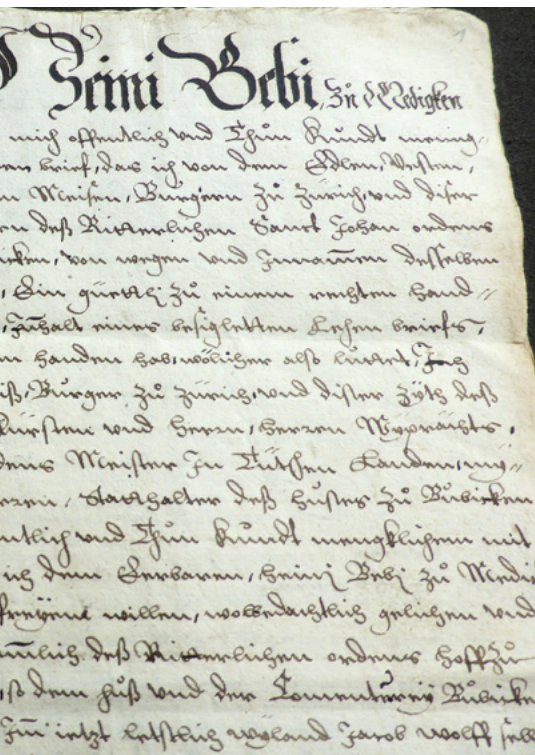 Heini Bebi, Zů Medigken
mich offentlich vnd Thůn kundt meing-
en brief, das ich von dem Edlen, Vesten,
n Meisen, Burgern zů Zürich, vnd diser
en deß Ritterlichen Sanct Johan ordens
icken, von wegen vnd Jnnamen desselben
, Ein güettlj zů einem rechten Hand-
, Jnhalt eines besigletten Lehen briefs,
n handen hab, wölicher also luttet, Jch
iß, Burger zů Zürich, vnd diser zyth deß
fürsten vnd Herrn, Herren
dens Meister Jn Tütschen Landen, my-
erren, Statthalter deß huses zů Bůbicken
ntlich vnd Thůn kundt mengklichem mit
ich dem Eerbaren, Heinj Bebj zů Medi
freyem willen, wolbedachtlich gelichen vnd
mlich deß Ritterlichen ordens hoff zů
, so dem huß vnd der Comenterey Bůbicke
Jm ietzt letstlich wyland Jacob wolff selb